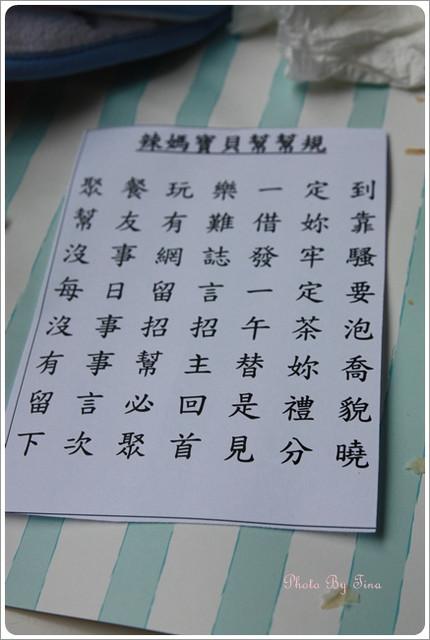 辣媽寶貝幫幫規
聚餐玩樂一定到
幫友有難借妳靠
沒事網誌發牢騷
每日留言一定要
沒事招招午茶泡
有事幫主替妳喬
留言必回是禮貌
下次聚首見分曉
Photo By Tina